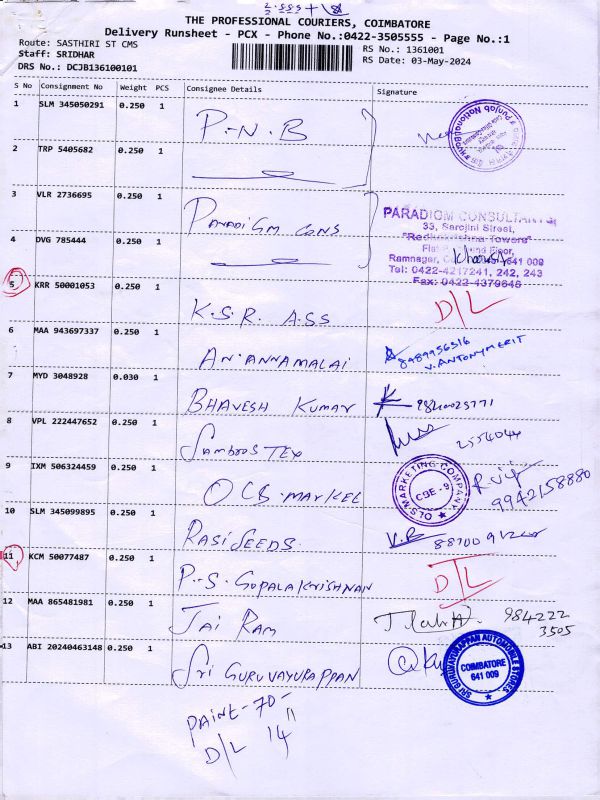 THE PROFESSIONAL COURIERS, COIMBATORE
Delivery Runsheet - PCX - Phone No.:0422-3505555 - Page No.:1
Route: SASTHIRI ST CMS
RS No.: 1361001
Staff: SRIDHAR
RS Date: 03-May-2024
DRS No.: DCJB136100101
S No Consignment No Weight PCS Consignee Details Signature
1 SLM 345050291 0.250 1 P-N-B
Punjab National Bank
2 TRP 5405682 0.250 1
3 VLR 2736695 0.250 1 PARADIGM CONS
PARADIGM CONSULTANTS
33, Sarojini Street,
4 DVG 785444 0.250 1
"Radhakrishna Towers"
Floor,
Ramnagar, 641 009
Tel: 0422-4217241, 242, 243
Fax: 0422-4379646
5 KRR 50001053 0.250 1 K.S.R. ASS D/L
6 MAA 943697337 0.250 1 AN.ANNAMALAI 8489956516
V.ANTONYMERIT
7 MYD 3048928 0.030 1 BHAVESH KUMAR
8 VPL 222447652 0.250 1 SAMBROS TEX
9 IXM 506324459 0.250 1 OCB-MARKEL
OLS MARKETING COMPANY
CBE - 9
9942158880
10 SLM 345099895 0.250 1 RASI SEEDS. V.R
11 KCM 50077487 0.250 1 P-S-GOPALAKRISHNAN D/L
12 MAA 865481981 0.250 1 JAI RAM 984222
3505
13 ABI 20240463148 0.250 1 SRI GURUVAYURAPPAN
SRI GURUVAYURAPPAN AUTOMOBILE STORES
COIMBATORE
641 009
D/L 14